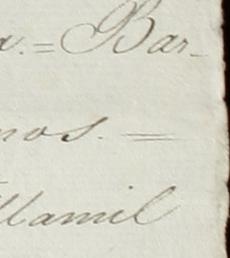 a.= Bar-
nos. =
llamil